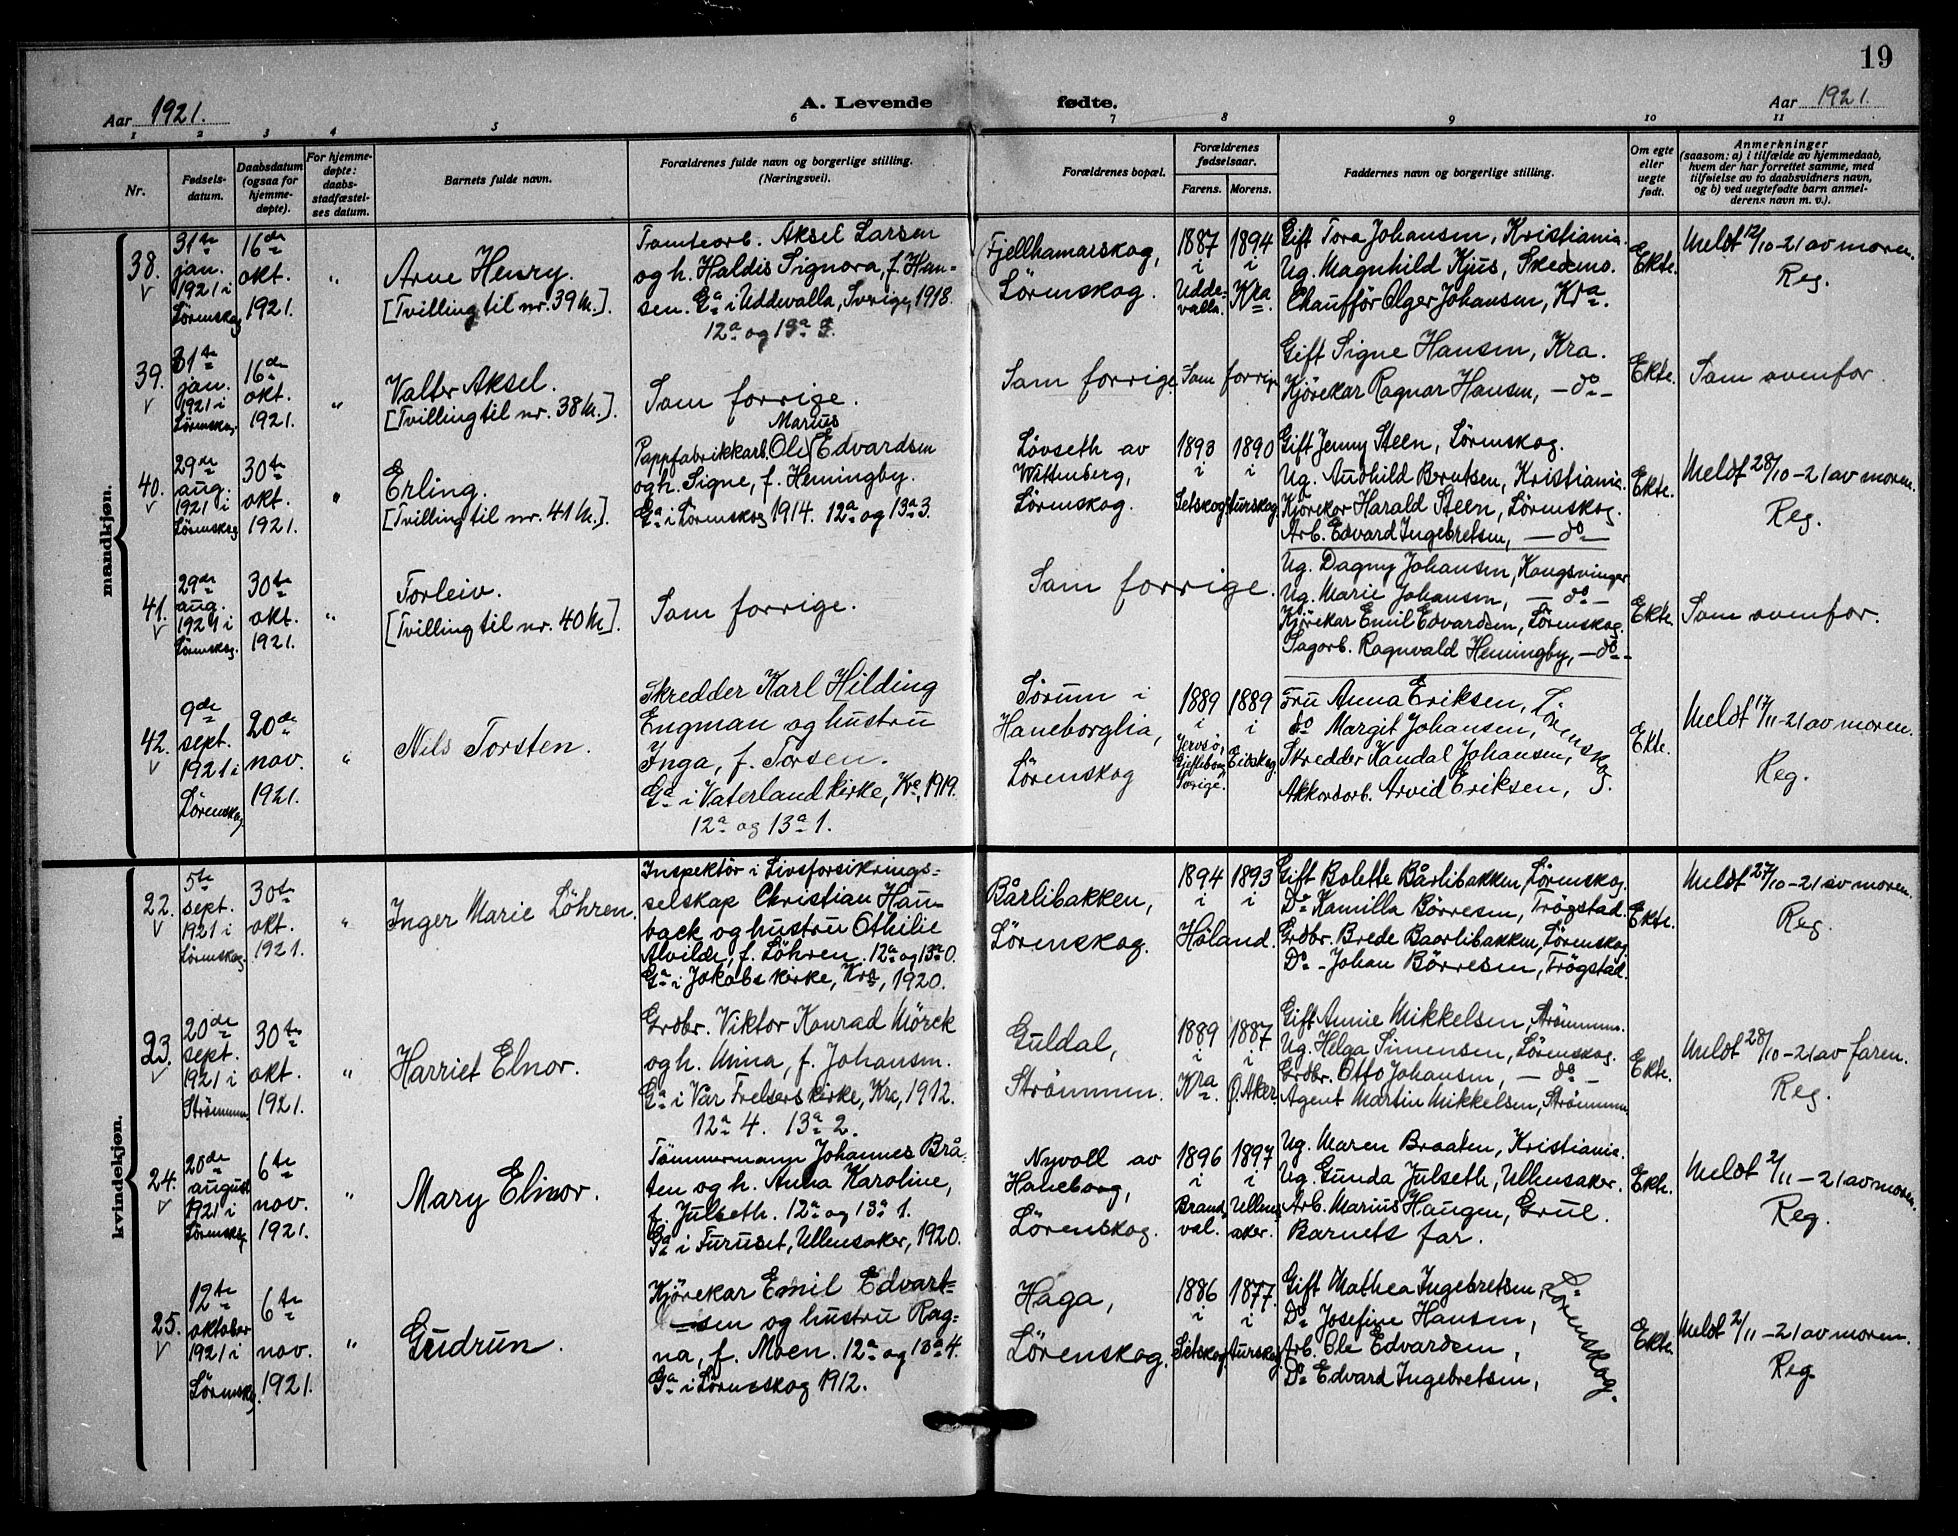 19
Aar 1921. A. Levende fødte. Aar 1921.
1 2 3 4 5 6 7 8 9 10 11
Nr.
Fødsels-
datum.
Daabsdatum
(ogsaa for
hjemme-
døpte).
For hjemme-
døpte:
daabs-
stadfæstel-
ses datum.
Barnets fulde navn.
Forældrenes fulde navn og borgerlige stilling.
(Næringsvei).
Forældrenes bopæl.
Forældrenes
fødselsaar.
Farens. Morens.
Faddernes navn og borgerlige stilling.
Om egte
eller
uegte
født.
Anmerkninger
(saasom: a) i tilfælde av hjemmedaab,
hvem der har forrettet samme, med
tilføielse av to daabsvidners navn,
og b) ved uegtefødte barn anmel-
derens navn m. v.).
mandkjøn.
38.
31te
jan.
1921 i
Lörenskog
16de
okt.
1921.
"
Arne Henry.
[Tvilling til nr. 39 M.].
Tomtearb. Aksel Larsen
og h. Haldis Signora, f. Han-
sen. Ga i Uddevalla, Sverige, 1918.
12a og 13a 3.
Fjellhamarskog,
Lörenskog.
1887
i
Udde-
valla.
1894
i
Kra.
Gift Tora Johansen, Kristiania.
Ug. Magnhild Kjus, Skedsmo.
Chaufför Olger Johansen, Kra.
Ekte.
Meldt 12/10-21 av moren.
Reg.
39.
31te
jan.
1921 i
Lörenskog
16de
okt.
1921.
"
Valter Aksel.
[Tvilling til nr. 38 M.].
Som forrige.
Som forrige
Som forrige
Gift Signe Hansen, Kra.
Kjörekar Ragnar Hansen, - do -
Ekte.
Som ovenfor.
40.
29de
aug.
1921 i
Lörenskog
30te
okt.
1921.
"
Erling.
[Tvilling til nr. 41 M.].
Marius
Pappfabrikkarb. Ole Edvardsen
og h. Signe, f. Hemingby.
Ga i Lörenskog 1914. 12a og 13a 3.
Lövseth av
Wittenberg,
Lörenskog.
1893
i
Setskog
1890
i
Aurskog.
Gift Jenny Steen, Lörenskog.
Ug. Audhild Berntsen, Kristiania.
Kjörekar Harald Steen, Lörenskog.
Arb. Edvard Ingebretsen, - do -
Ekte.
Meldt 28/10-21 av moren.
Reg.
41.
29de
aug.
1921 i
Lörenskog.
30te
okt.
1921.
"
Torleiv.
[Tvilling til nr. 40 M.].
Som forrige.
Som forrige.
Ug. Dagny Johansen, Kongsvinger
Ug. Marie Johansen, - do -
Kjörekar Emil Edvardsen, Lörenskog.
Sagarb. Ragnvald Hemingby, - do -
Ekte.
Som ovenfor.
42.
9de
sept.
1921 i
Lörenskog
20de
nov.
1921.
"
Nils Torsten.
Skredder Karl Hilding
Engman og hustru
Inga, f. Torsen.
Ga i Vaterland kirke, Kra, 1919.
12a og 13a 1.
Sörum i
Haneborglia,
Lörenskog
1889
i
Jervsö,
Sverige.
1889
i
Eidskog.
Fru Anna Eriksen,
do Margit Johansen,
Skredder Johansen,
Akkordarb. Arvid Eriksen,
Lörenskog.
Ekte.
Meldt 17/11-21 av moren.
Reg.
kvindekjøn.
22.
5te
sept.
1921 i
Lörenskog.
30te
okt.
1921.
"
Inger Marie Löhren.
Inspektör i Livsforsikrings-
selskap Christian Hau-
back og hustru Othilie
Alvilde, f. Löhren. 12a og 13a 0.
Ga i Jakobs kirke, Kra, 1920.
Bårlibakken,
Lörenskog.
1894
i
1893
i
Höland.
Gift Bolette Bårlibakken, Lörenskog.
Do Kamilla Börresen, Trögstad.
Grdbr. Brede Baarlibakken, Lörenskog
Do - Johan Börresen, Trögstad.
Ekte.
Meldt 27/10-21 av moren.
Reg.
23.
20de
sept.
1921 i
Strömmen
30te
okt.
1921.
"
Harriet Elnor.
Grdbr. Viktor Konrad Mörck
og h. Mina, f. Johansen.
Ga i Vår Frelsers kirke, Kra, 1912.
12a 4. 13a 2.
Guldal,
Strömmen.
1889
i
Kra
1887
i
Ö. Aker.
Gift Annie Mikkelsen, Strömmen.
Ug. Helga Simensen, Lörenskog.
Grdbr. Otto Johansen, - do -
Agent Martin Mikkelsen, Strömmen
Ekte.
Meldt 28/10-21 av faren.
Reg.
24.
20de
august
1921 i
Lörenskog
6te
nov.
1921.
"
Mary Elinor.
Tömmermann Johannes Brå-
ten og h. Anna Karoline,
f. Julseth. 12a og 13a 1.
Ga i Furuset, Ullensaker, 1920.
Nyvoll av
Haneborg,
Lörenskog.
1896
i
Brand-
val.
1897
i
Ullens-
aker.
Ug. Maren Braaten, Kristiania.
Ug. Gunda Julseth, Ullensaker.
Arb. Marius Haugen, Grue.
Barnets far.
Ekte.
Meldt 2/11-21 av moren.
Reg.
25.
12te
oktober
1921 i
Lörenskog.
6te
nov.
1921.
"
Gudrun.
Kjörekar Emil Edvard-
sen og hustru Rag-
na, f. Moen. 12a og 13a 4.
Ga i Lörenskog 1912.
Haga,
Lörenskog.
1886
i
Setskog
1877.
i
Aurskog
Gift Mathea Ingebretsen,
Do Josefine Hansen,
Arb. Ole Edvardsen,
Do Edvard Ingebretsen,
Lörenskog.
Ekte.
Meldt 2/11-21 av moren.
Reg.